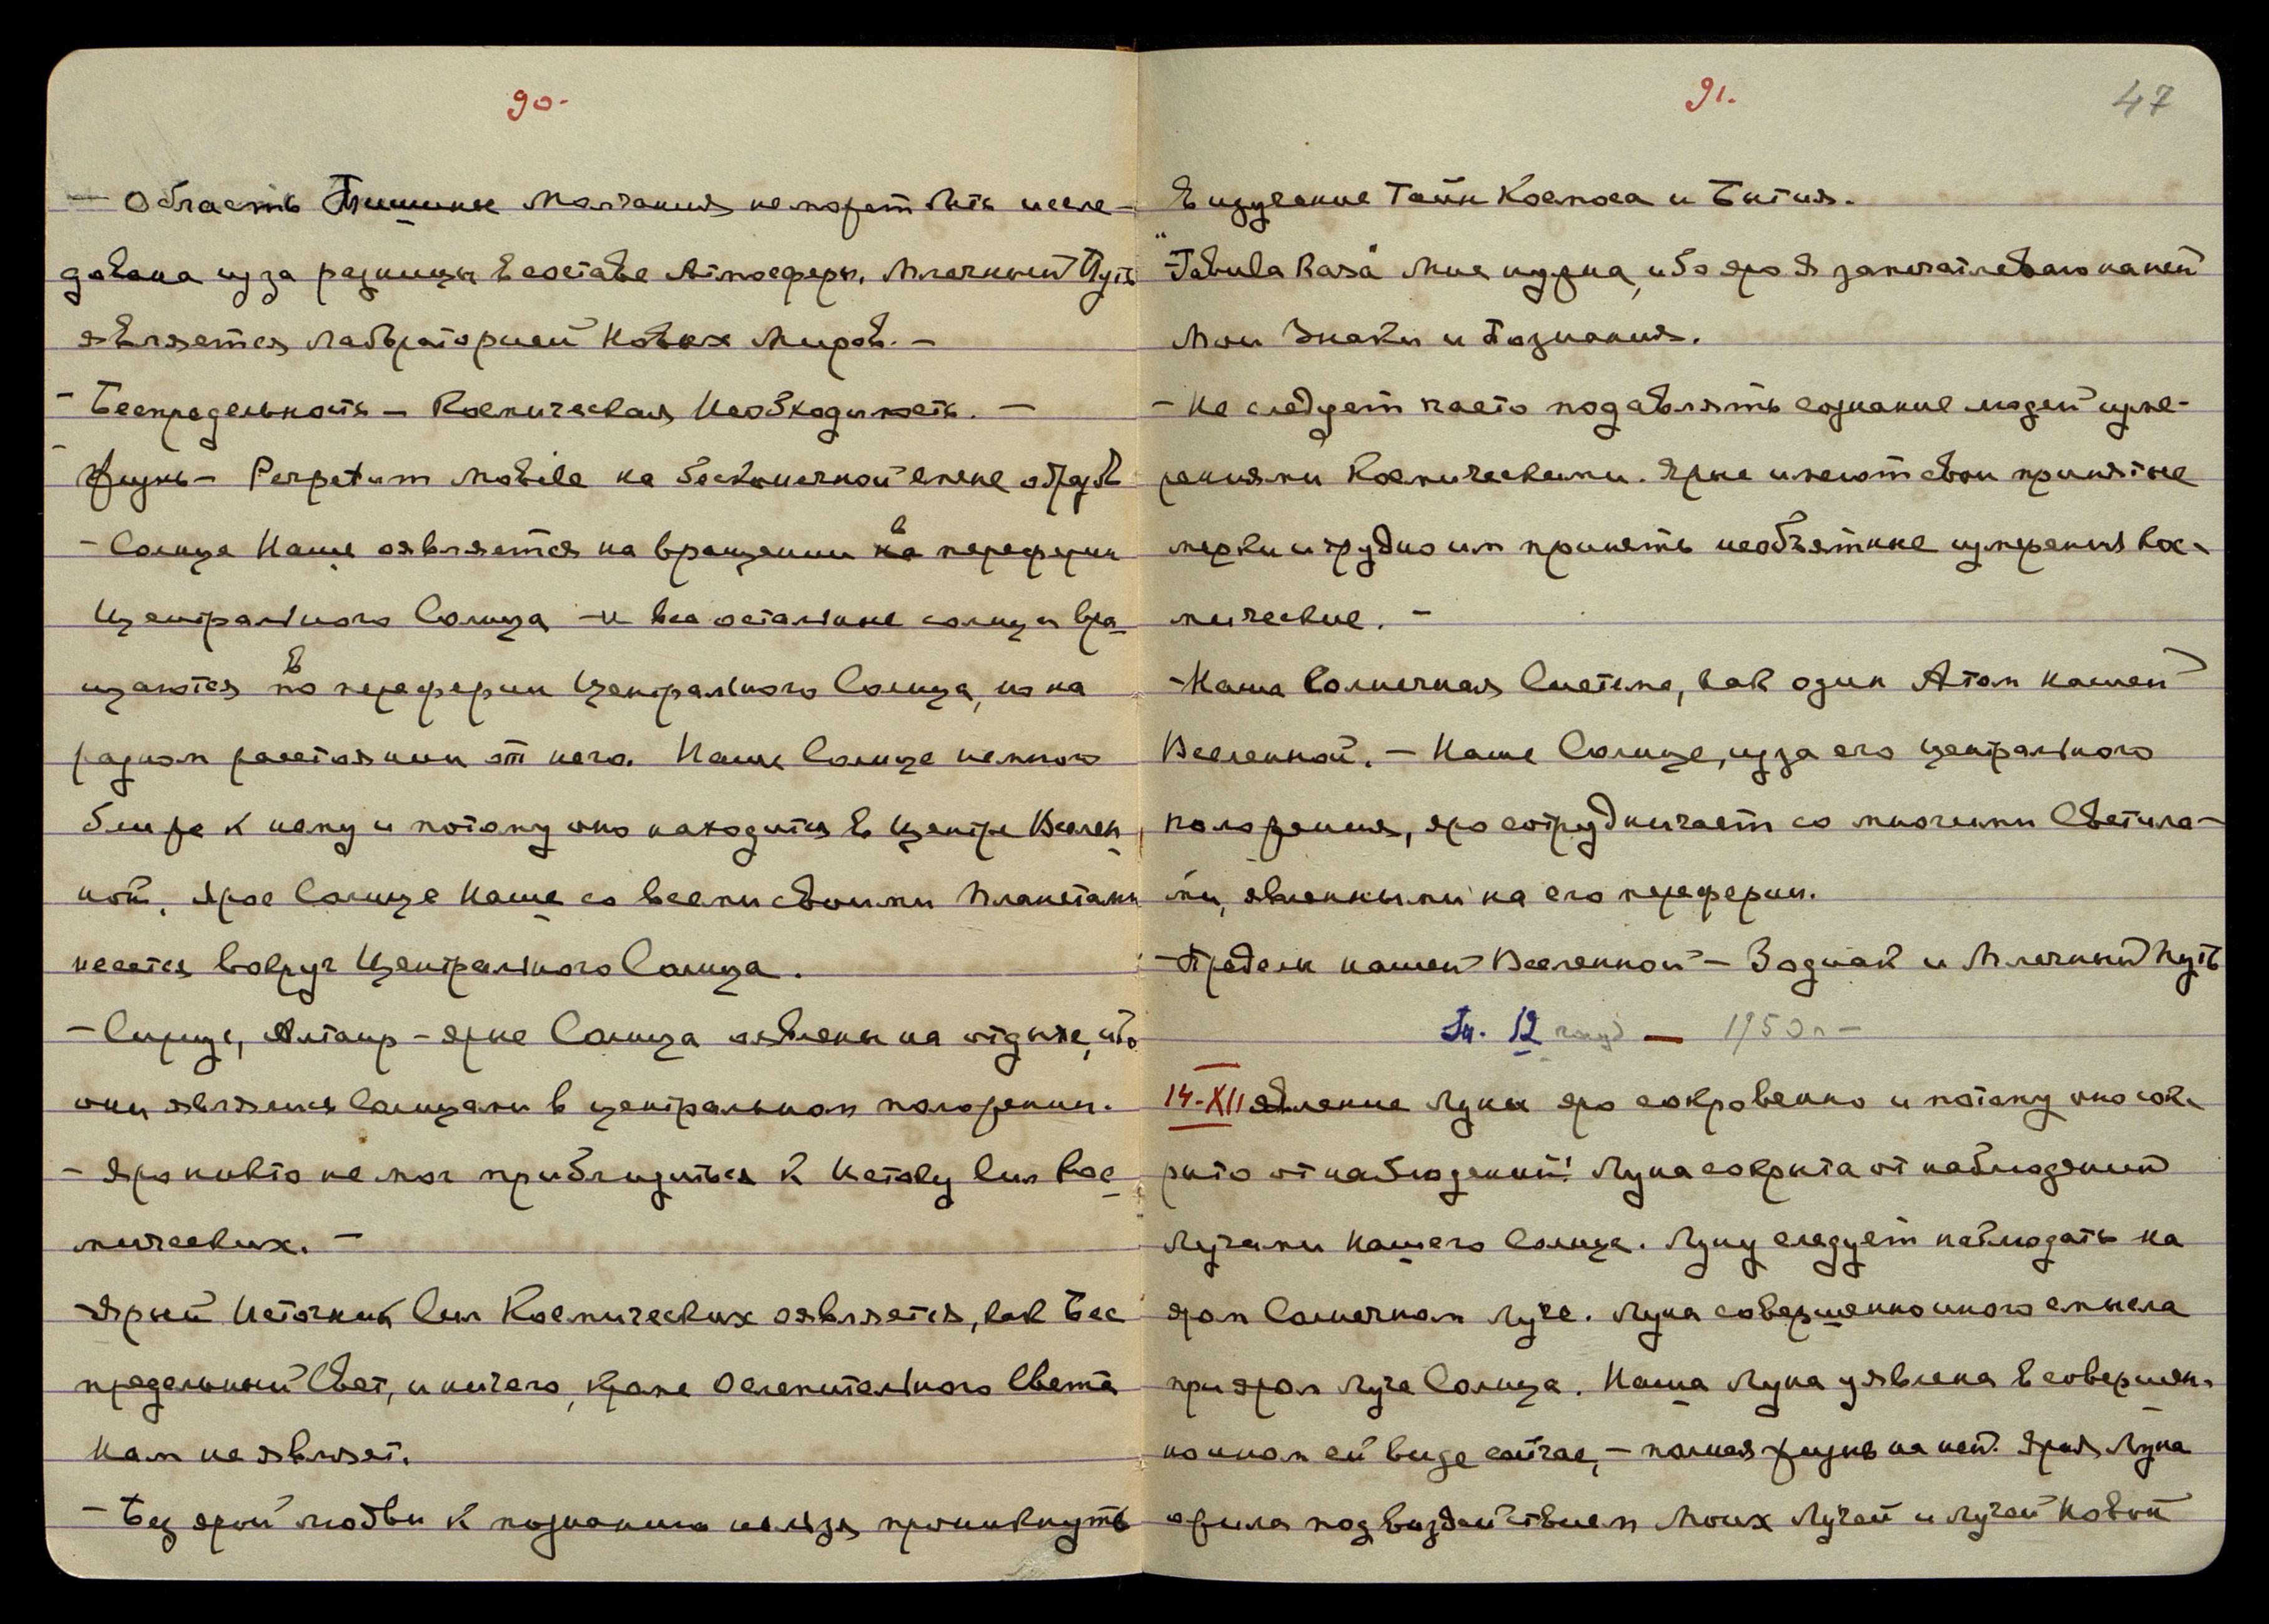 90.
— Область Тишины Молчания не может быть иссле-
дована из за разницы в составе Атмосферы. Млечный Путь
является лабораторией Новых Миров. —
- Беспредельность — Космическая Необходимость. —
- Жизнь — Perpetum Mobile на бесконечной смене
- Солнце Наше оявляется на вращении в перефери
Центрального Солнца — и все остальные солнца вра-
щаются в переферии Центрального Солнца, но на
разном расстоянии от него. Наше Солнце немного
ближе к нему и потому оно находится в центре Вселен-
ной. Ярое Солнце Наше со всеми своими Планетами
несется вокруг Центрального Солнца.
- Сириус, Алтаир — ярые Солнца оявлены на отдыхе, ибо
они явлены Солнцами в центральном положении.
- Яро никто не мог приблизиться к Истоку Сил Кос-
мических. —
- Ярый Источник Сил Космических оявляется, как Бес
предельный Свет, и ничего, кроме Ослепительного Света
Нам не являет.
- Без ярой любви к познанию нельзя проникнуть
91.
47
в изучение Тайн Космоса и Бытия.
"Tabula Rasa" Мне нужна, ибо яро Я запечатлеваю на ней
Мои Знаки и Познания.
- Не следует часто подавлять сознание людей изме-
рениями Космическими. Ярые имеют свои принятые
мерки и трудно им принять необъятные измерения кос-
мические. —
- Наша Солнечная Система, как один Атом нашей
Вселенной. — Наше Солнце, из за его центрального
положения, яро сотрудничает со многими Светила-
ми, явленными на его переферии.
- Пределы нашей Вселенной — Зодиак и Млечный Путь
12 — 1950 —
14-XII явление Луны яро сокровенно и потому оно сок-
рыто от наблюдений! Луна сокрыта от наблюдений
Лучами Нашего Солнца. Луну следует наблюдать на
яром Солнечном Луче. Луна совершенно иного смысла
при яром Луче Солнца. Наша Луна уявлена в совершен-
но ином ей виде сейчас, — полная жизнь на ней. Ярая Луна
ожила под воздействием Моих Лучей и Лучей Новой